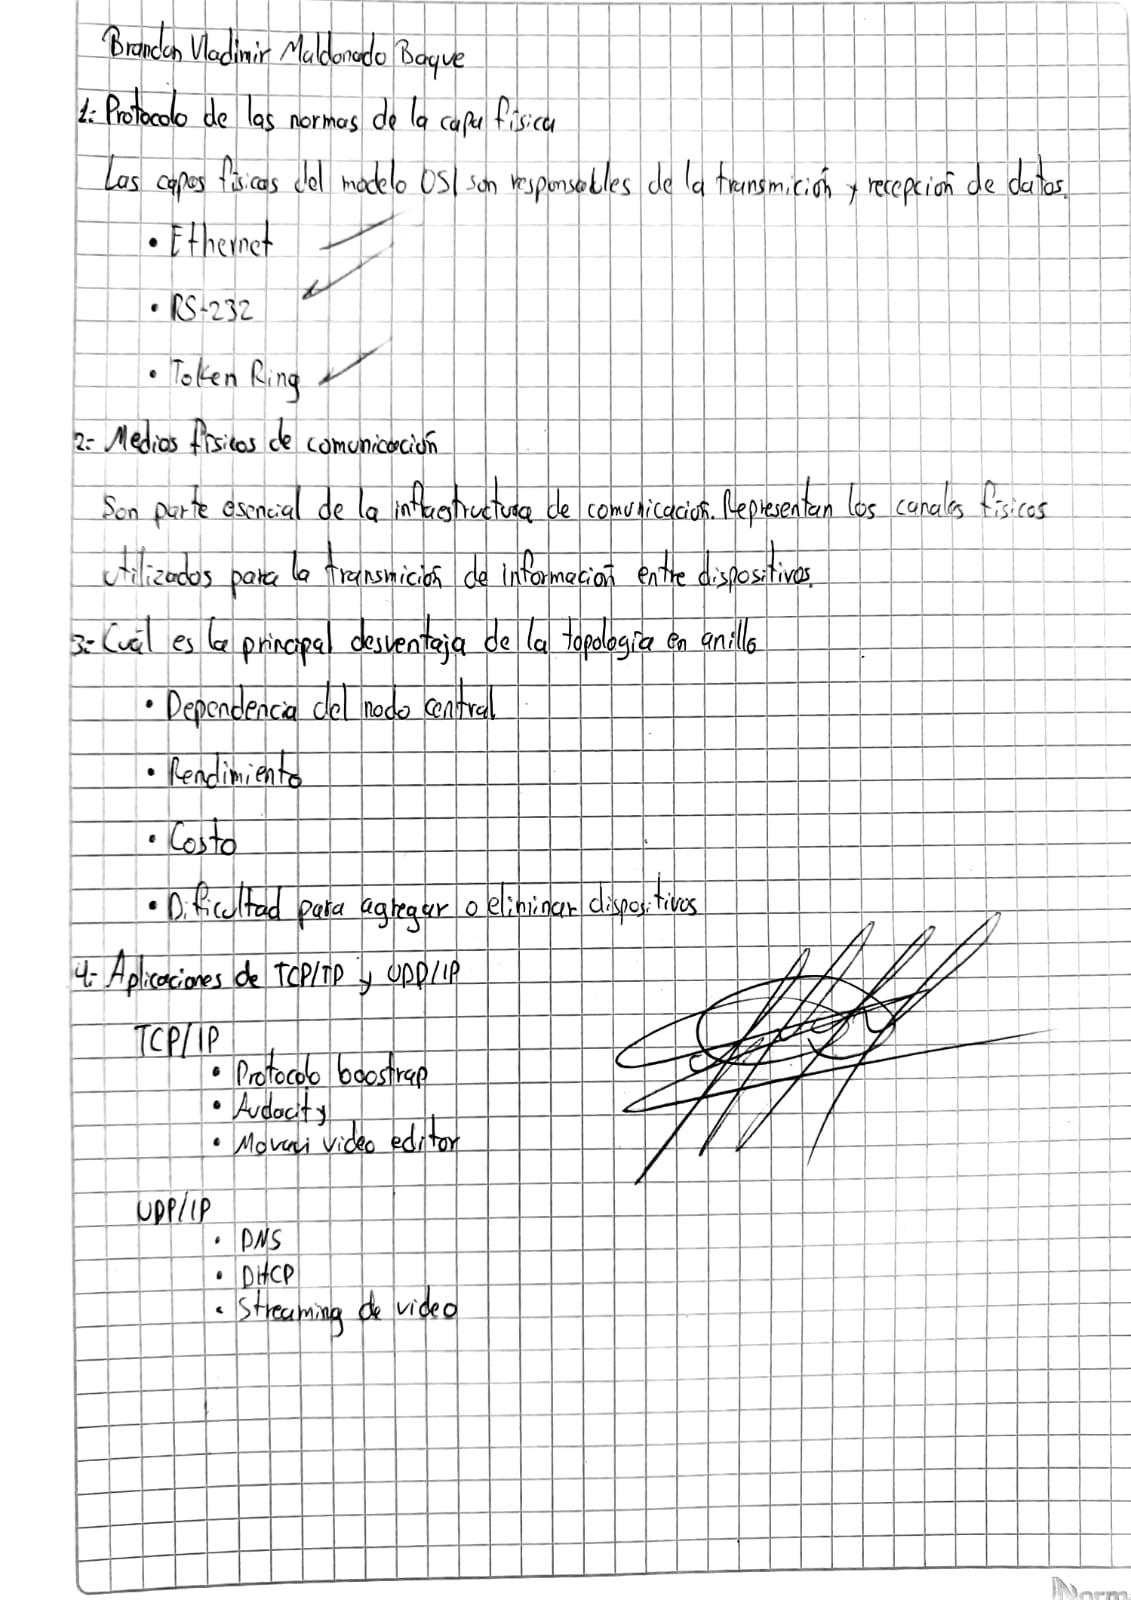 Brandon Vladimir Maldonado Baque
1: Protocolo de las normas de la capa física
Las capas físicas del modelo OSI son responsables de la transmición y recepción de datos.
• Ethernet
• RS-232
• Token Ring
2- Medios físicos de comunicación
Son parte esencial de la infraestructura de comunicación. Representan los canales físicos
utilizados para la transmición de información entre dispositivos.
3- Cuál es la principal desventaja de la topología en anillo
• Dependencia del nodo central
• Rendimiento
• Costo
• Dificultad para agregar o eliminar dispositivos
4- Aplicaciones de TCP/IP y UDP/IP
TCP/IP
• Protocolo boostrap
• Audacity
• Movavi video editor
UDP/IP
• DNS
• DHCP
• Streaming de video
Norm